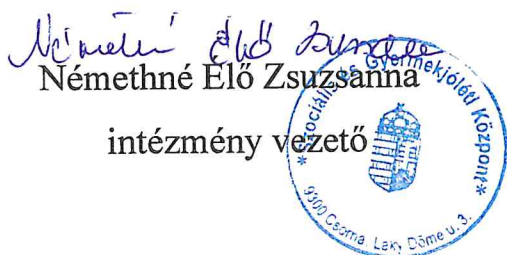 Némethné Élő Zsuzsanna
Némethné Élő Zsuzsanna
intézmény vezető
*Szociális és Gyermekjóléti Központ*
9300 Csorna, Laky Döme u. 3.